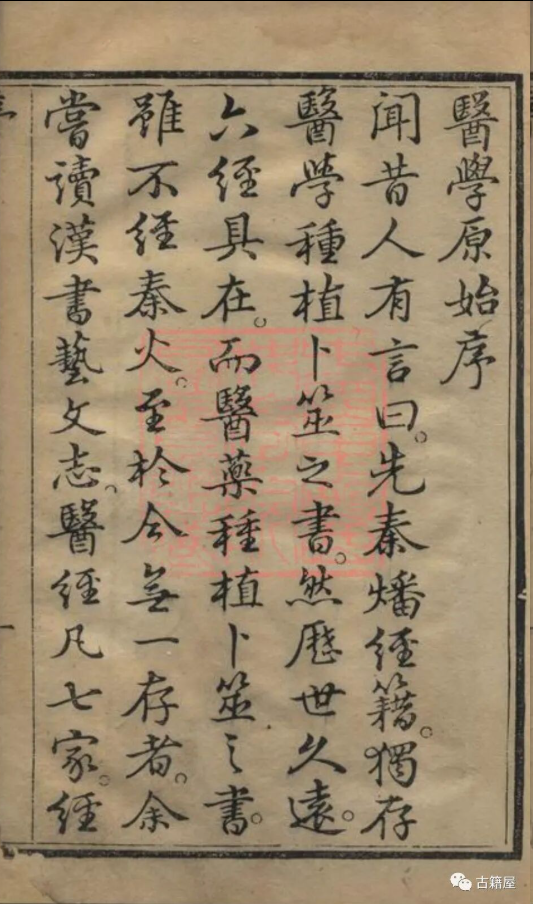 醫學原始序
聞昔人有言曰。先秦燔經籍。獨存
醫學種植卜筮之書。然歷世久遠。
六經具在。而醫藥種植卜筮之書。
雖不經秦火。至於今無一存者。余
嘗讀漢書藝文志。醫經凡七家。經
一
古籍屋